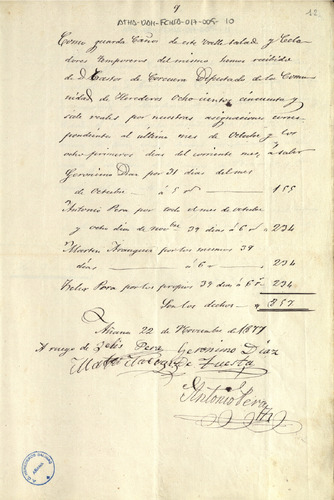 9
12
ATHA-DAH-FCMB-017-005-10
Como guarda Caños de este valle salado y Cela
dores temporeros del mismo hemos recibido
de D. Castor de Corcuera Diputado de la Comu
nidad de Herederos Ocho cientos cincuenta y
siete reales por nuestras asignaciones corres
pondientes al último mes de Octubre y los
ocho primeros dias del corriente mes, á saber
Geronimo Diaz por 31 dias del mes
de Octubre á 5 rs 155
Antonio Pera por todo el mes de octubre
y ocho dias de nov.bre 39 dias á 6 rs 234
Martin por los mismos 39
dias á 6 234
Felix Pera por los propios 39 dias á 6 rs 234
Son los dichos 857
Añana 22 de Noviembre de 1871
A ruego de Felis Pera Geronimo Diaz
de Fuesta
Antonio Pera